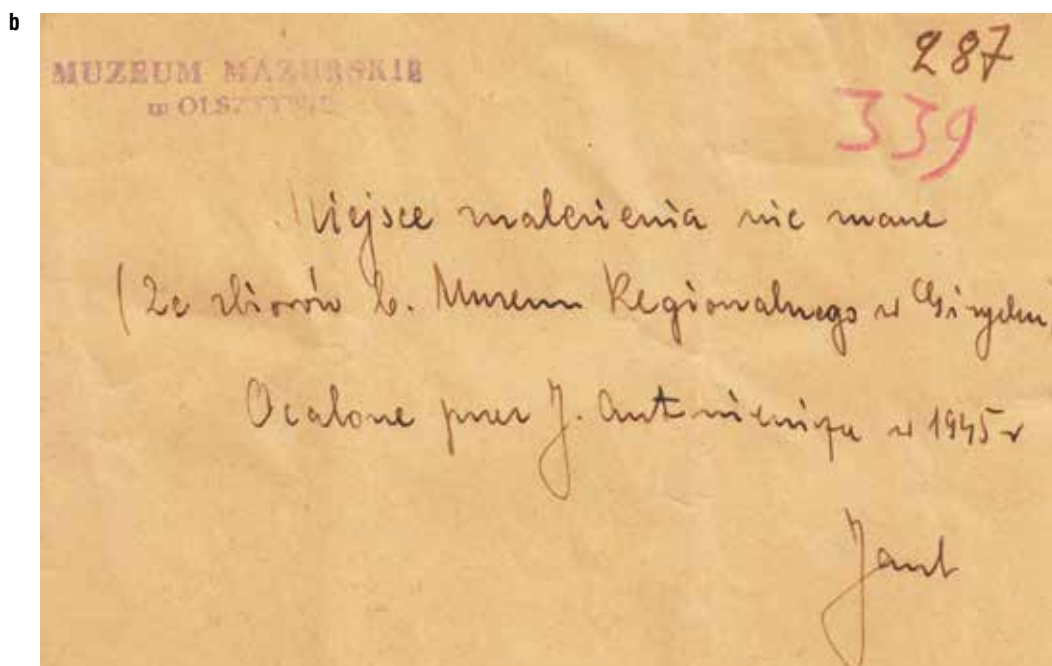 b
MUZEUM MAZURSKIE
w OLSZTYNIE
287
339
Miejsce znalezienia nie znane
(Ze zbiorów b. Muzeum Regionalnego w Giżycku
Ocalone przez J. Antoniewicza w 1945 r
JAnt